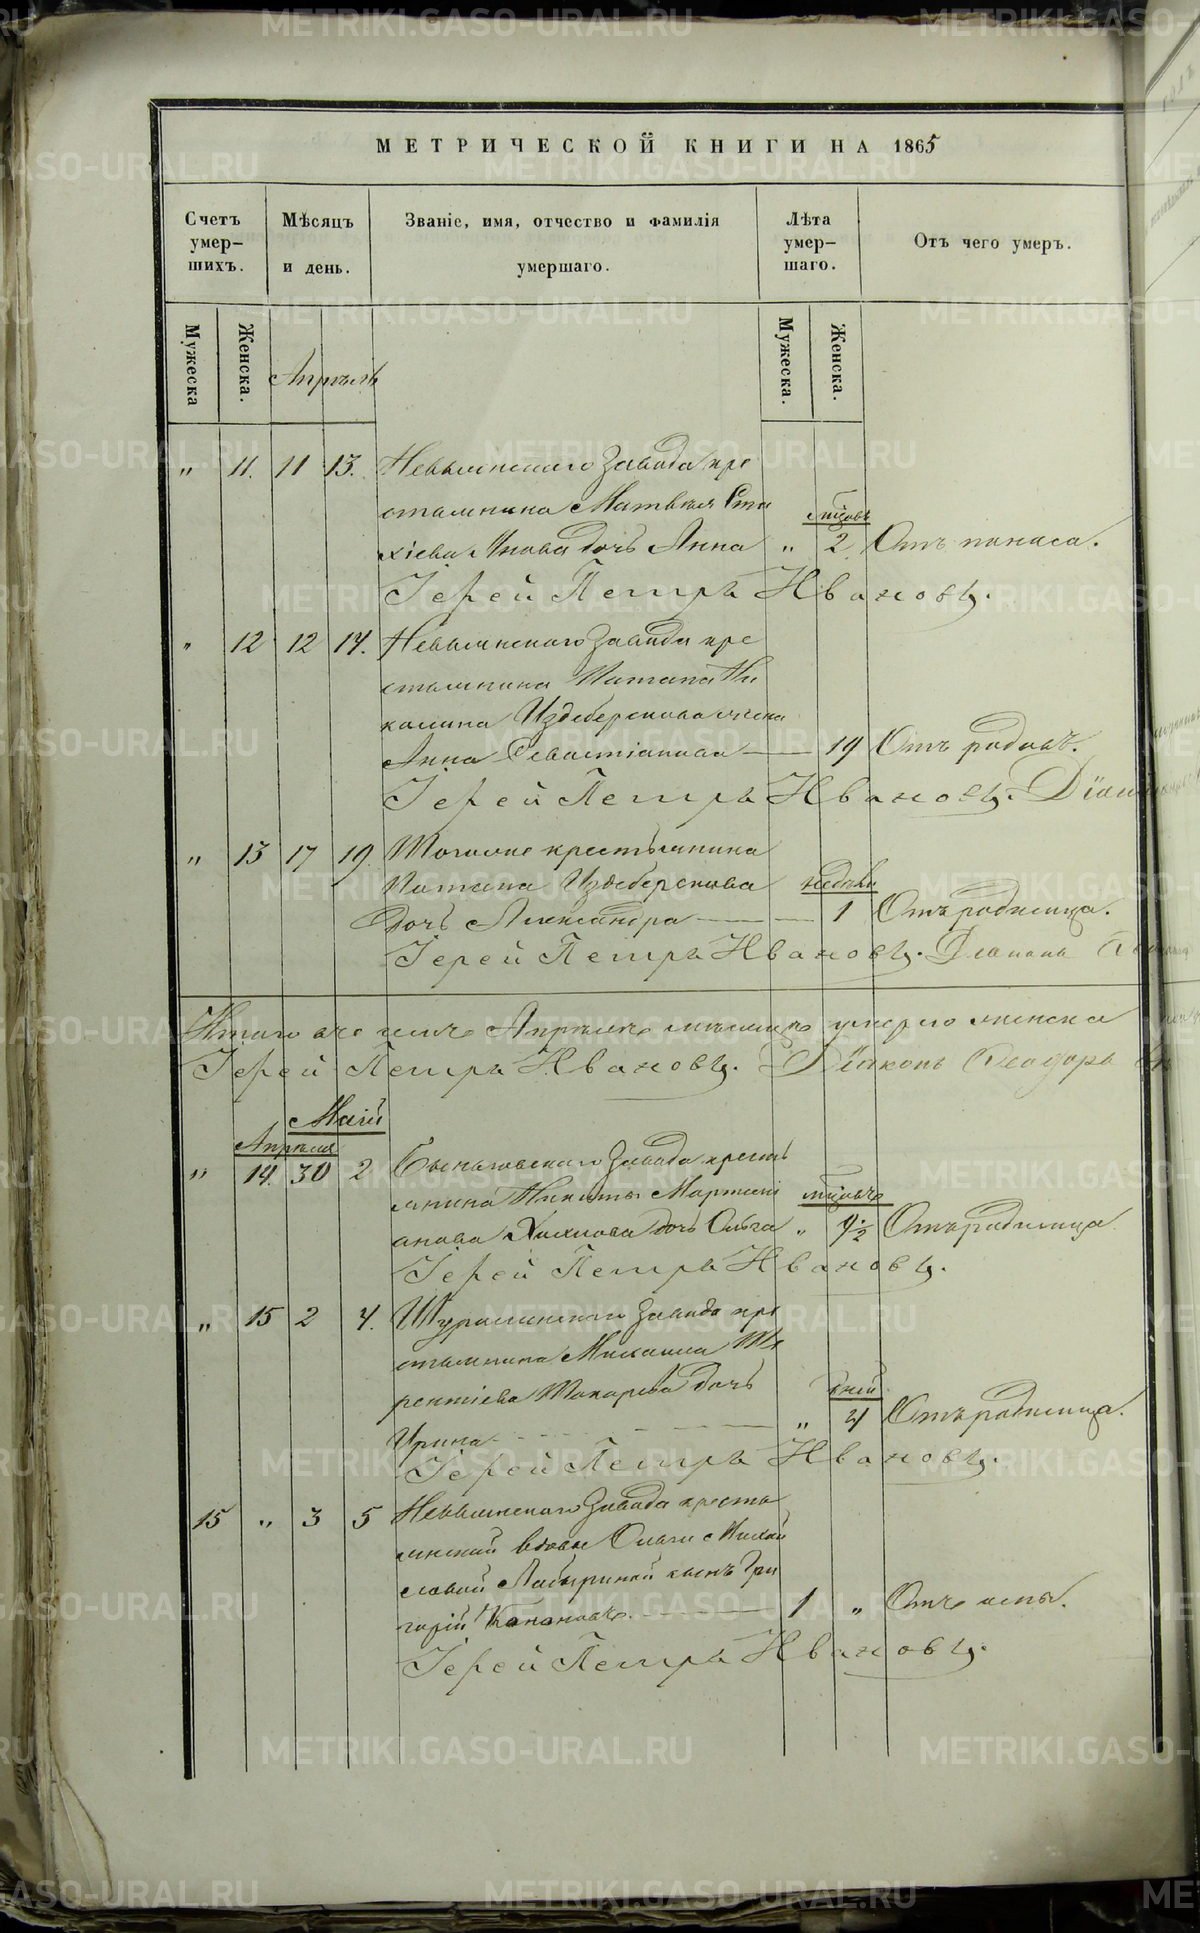 МЕТРИЧЕСКОЙ КНИГИ НА 1865
Счетъ умер-шихъ.
Мѣсяцъ и день.
Званіе, имя, отчество и фамилія умершаго.
Лѣта умер-шаго.
Отъ чего умеръ.
Мужеска
Женска.
Мужеска.
Женска.
Апрѣль
„ 11. 11 13. Невьянскаго Завода кре
стьянина Матвѣя Ста
хіева дочь Анна „ 2 Отъ поноса.
Іерей Петръ Ивановъ.
„ 12 12 14. Невьянскаго Завода кре
стьянина Потапа Ни
колина Издеберскова жена
Анна Севастіанова 19 Отъ родовъ.
Іерей Петръ Ивановъ.
„ 13 17 19. Тогоже крестьянина
Потапа Издеберскова недѣли
дочь Александра 1 Отъ родимца.
Іерей Петръ Ивановъ. Діаконъ
Итого въ Апрѣлѣ мѣсяцѣ умерло женска
Іерей Петръ Ивановъ. Діаконъ Феодоръ
Маій
Апрѣля
„ 14. 30 2 Быньговскаго Завода кресть
янина Никиты мѣсяцъ
анова дочь Ольга „ 9 1/2 Отъ родимца
Іерей Петръ Ивановъ.
„ 15 2 4. Шуралинскаго Завода кре
стьянина Михаила Те
рентіева Токарева дочь дней
Ирина „ 4 Отъ родимца.
Іерей Петръ Ивановъ.
15 „ 3 5 Невьянскаго Завода кресть
янской вдовы Ольги Михай
ловой сынъ Гри
горій 1 „ Отъ оспы.
Іерей Петръ Ивановъ.
METRIKI.GASO-URAL.RU